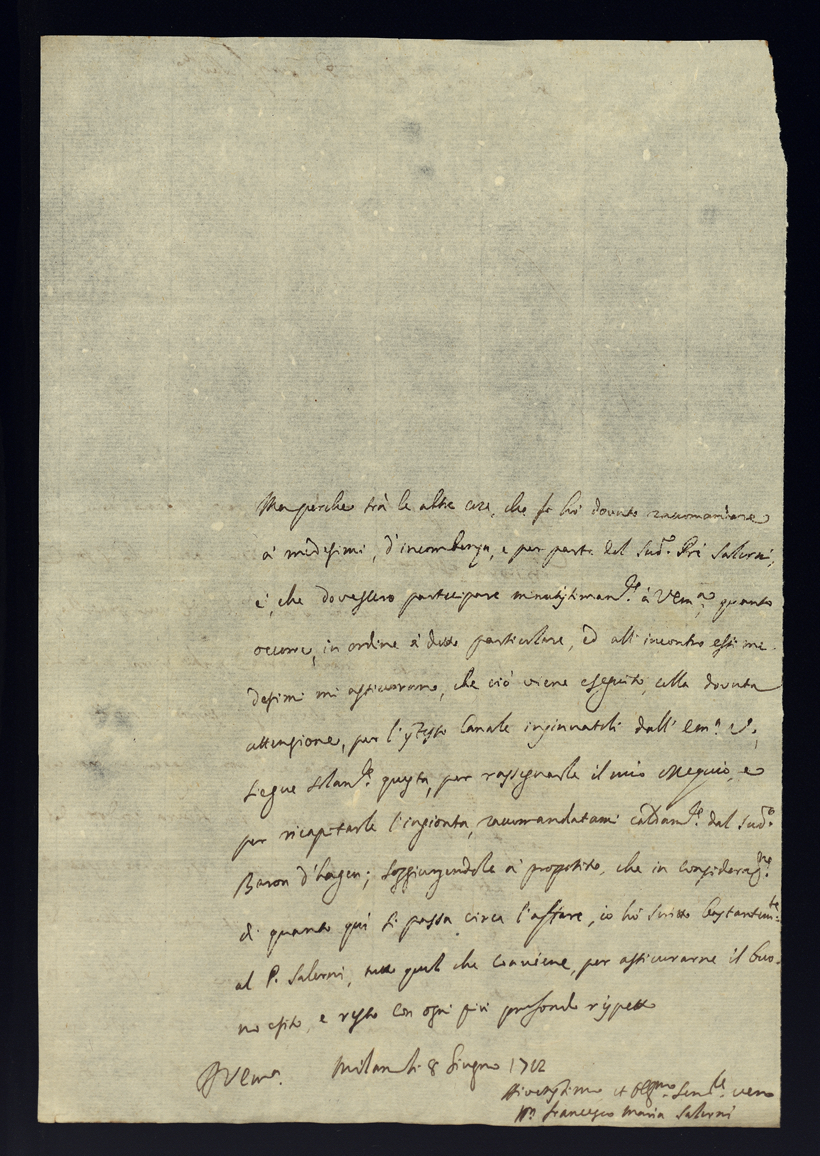 Ma perche trà le altre cose, che si hò dovuto raccomandare
a' medesimi, d'incombenza, e per parte del Sud.º Prē Salerni,
è, che dovessero participare minutissimam.te à V Em.ª quanto
occorre, in ordine à detto particolare, ed all'incontro essi me-
desimi mi assicurorono, che ciò viene eseguito, colla dovuta
attenzione, per l'istesso Canale ingionnatoli dall' Em.ª V.ª,
siegue solam.te questa, per rassegnarle il mio ossequio, e
per ricapitarle l'ingionta, raccomandatami caldam.te dal Sud.º
Baron d'Hagen; soggiungendole à proposito, che in consideraz.ne
di quanto quì si passa circa l'affare, io hò scritto bastantem.te
al P. Salerni, tutto quel che conviene, per assicurarne il buo-
no esito, e resto con ogni più profondo rispetto
D V Em.ª Milan li 8 Giugno 1712
Divotissimo et Obligmo Ser.re vero
Francesco Maria Salerni